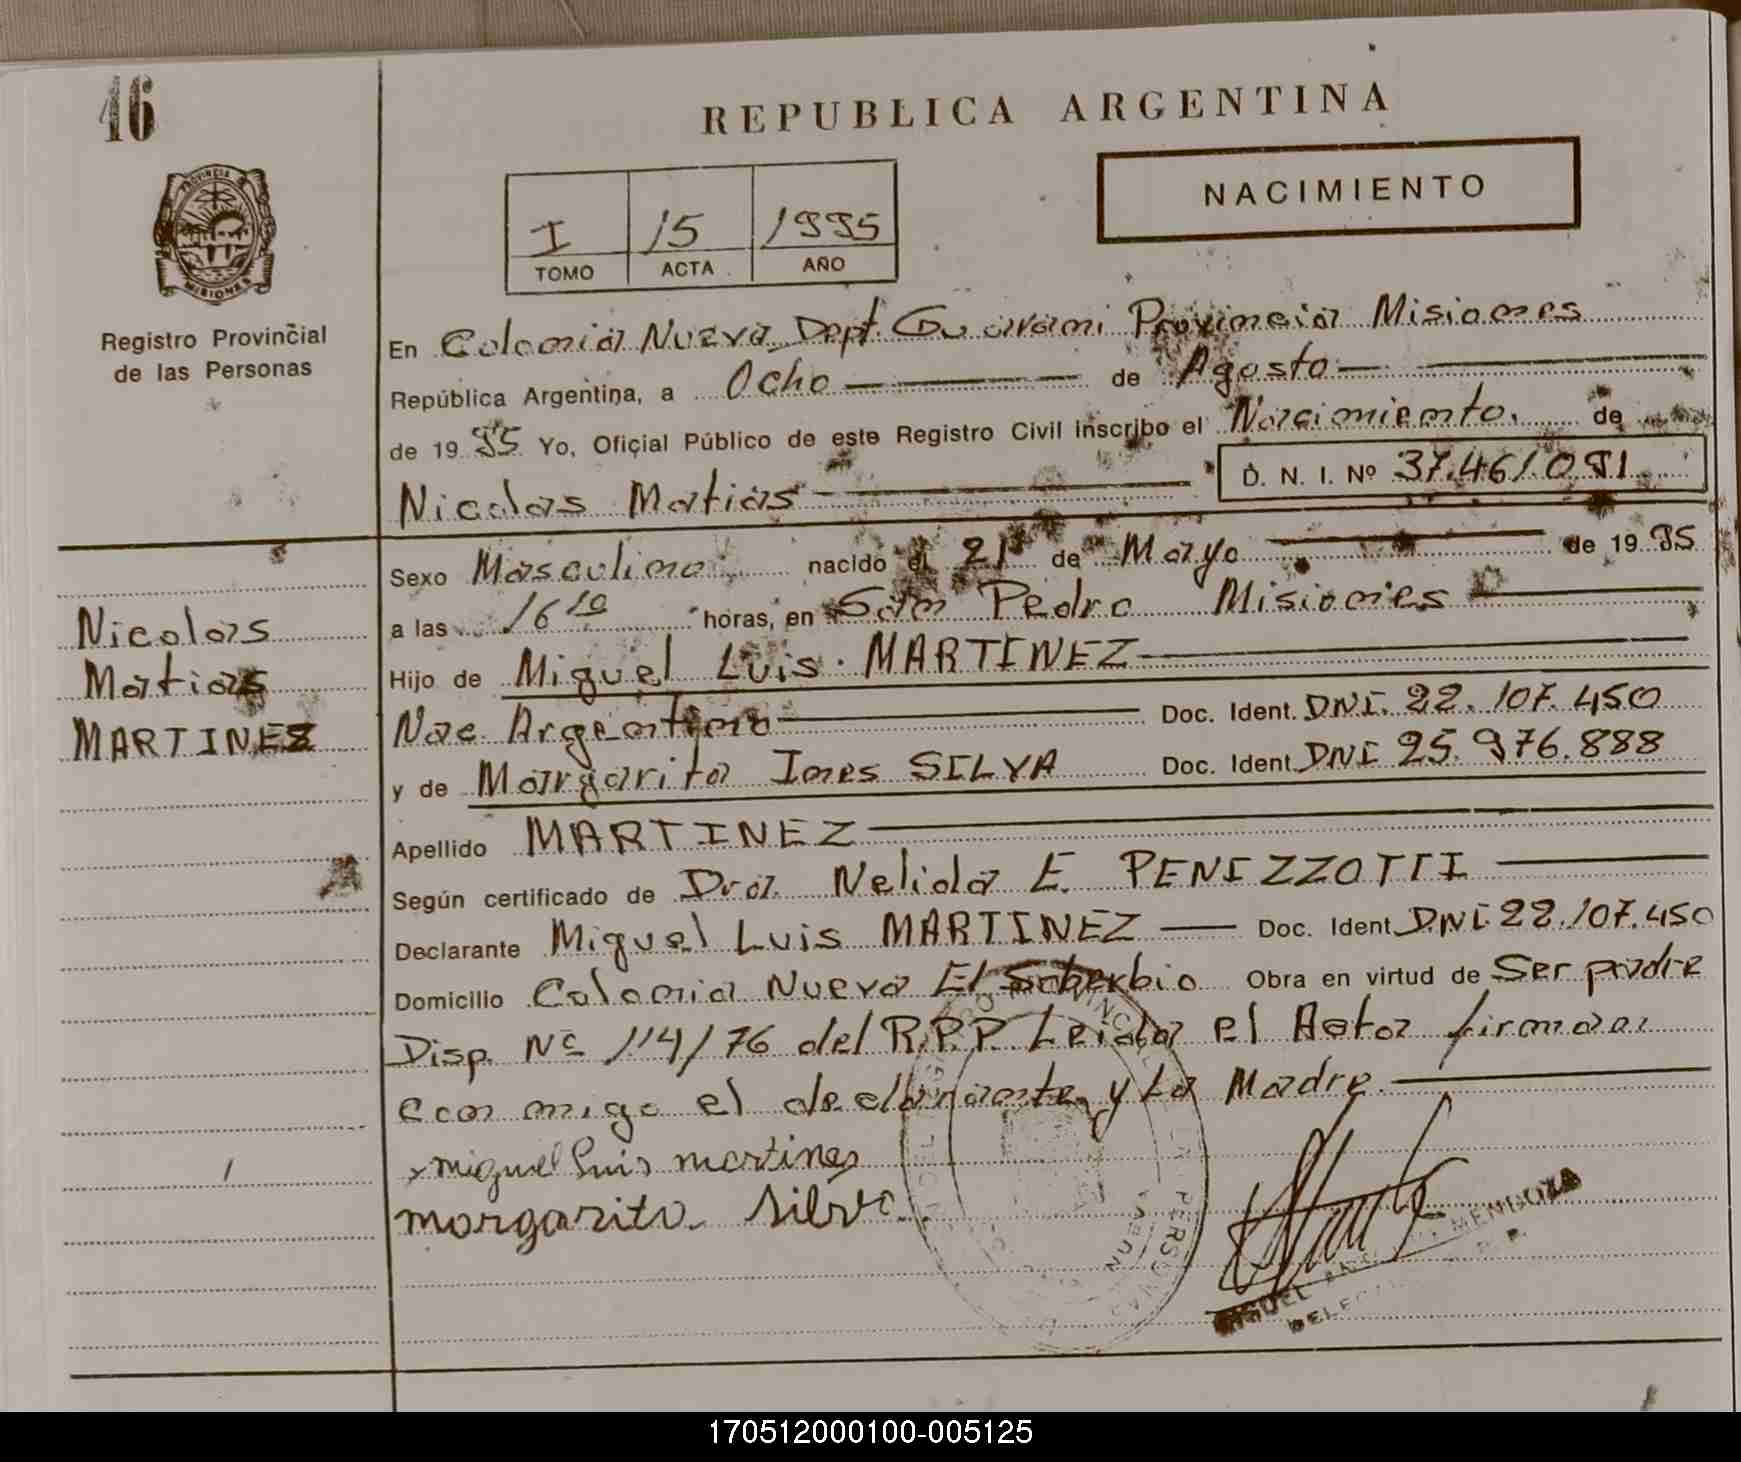 16
REPUBLICA ARGENTINA
NACIMIENTO
I 15 1995
TOMO ACTA AÑO
PROVINCIA
MISIONES
Registro Provincial
de las Personas
En Colonia Nueva Dept. Guarani Provincia Misiones
República Argentina, a Ocho de Agosto
de 1995 Yo, Oficial Público de este Registro Civil inscribo el Nacimiento. de
Nicolas Matias D. N. I. Nº 37.461.091
Sexo Masculino nacido el 21 de Mayo de 1995
a las 16 10 horas, en San Pedro Misiones
Nicolas
Matias
MARTINEZ
Hijo de Miguel Luis MARTINEZ
Nac. Argentino Doc. Ident. DNI. 22.107.450
y de Margarita Ines SILVA Doc. Ident. DNI 25.976.888
Apellido MARTINEZ
Según certificado de Dra. Nelida E. PENIZZOTTI
Declarante Miguel Luis MARTINEZ Doc. Ident. DNI 22.107.450
Domicilio Colonia Nueva El Soberbio Obra en virtud de Ser padre
Disp. Nº 114/76 del R.P.P. Leida el Acta firman
con migo el declarante y La Madre.
x miguel Luis martines
margarita silva
MIGUEL MENDOZA
170512000100-005125